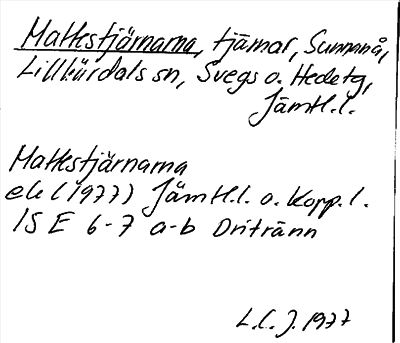 Mattestjärnarna, tjärnar, Sunnnå,
Lillhärdals sn, Svegs o. Hedetg,
Jämtl.l.
Mattestjärnarna
ek (1977) Jämtl.l. o. Kopp.l.
15 E 6-7 a-b Dritränn
L.l. J. 1977